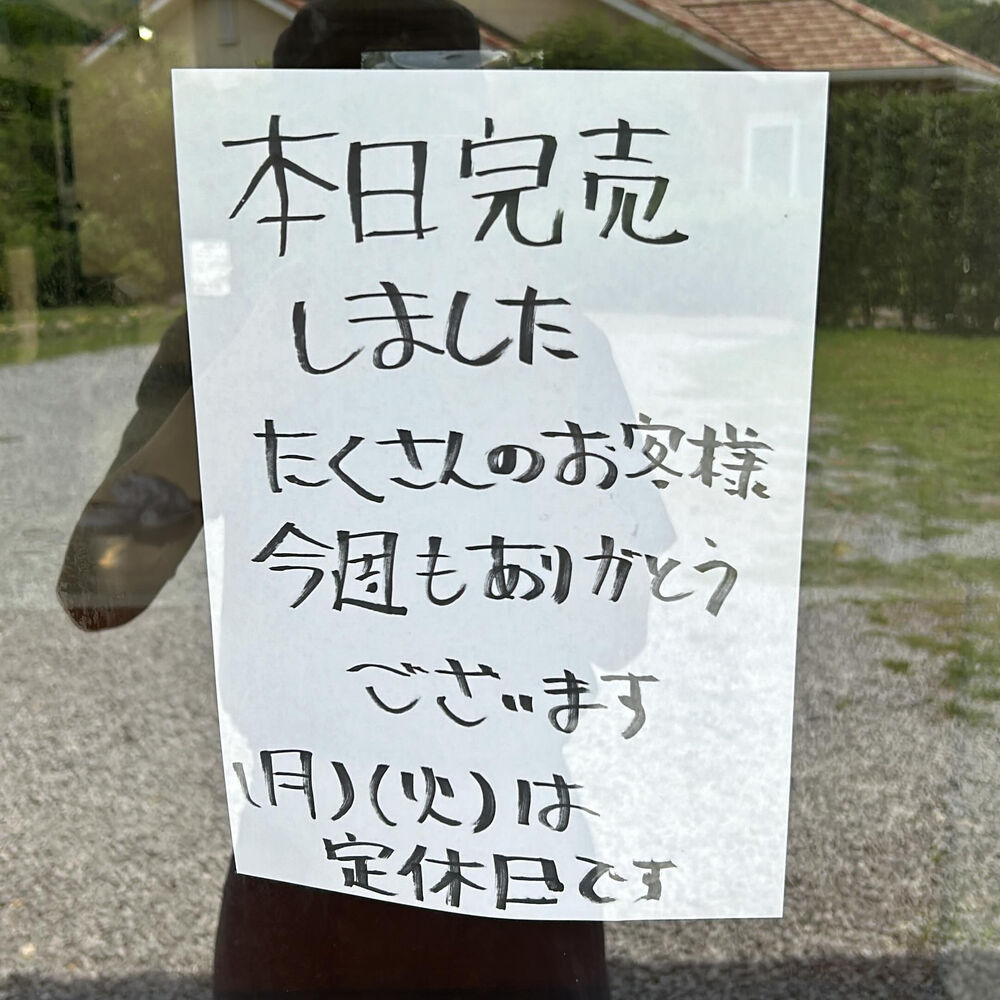 本日完売
しました
たくさんのお客様
今週もありがとう
ございます
(月)(火)は
定休日です